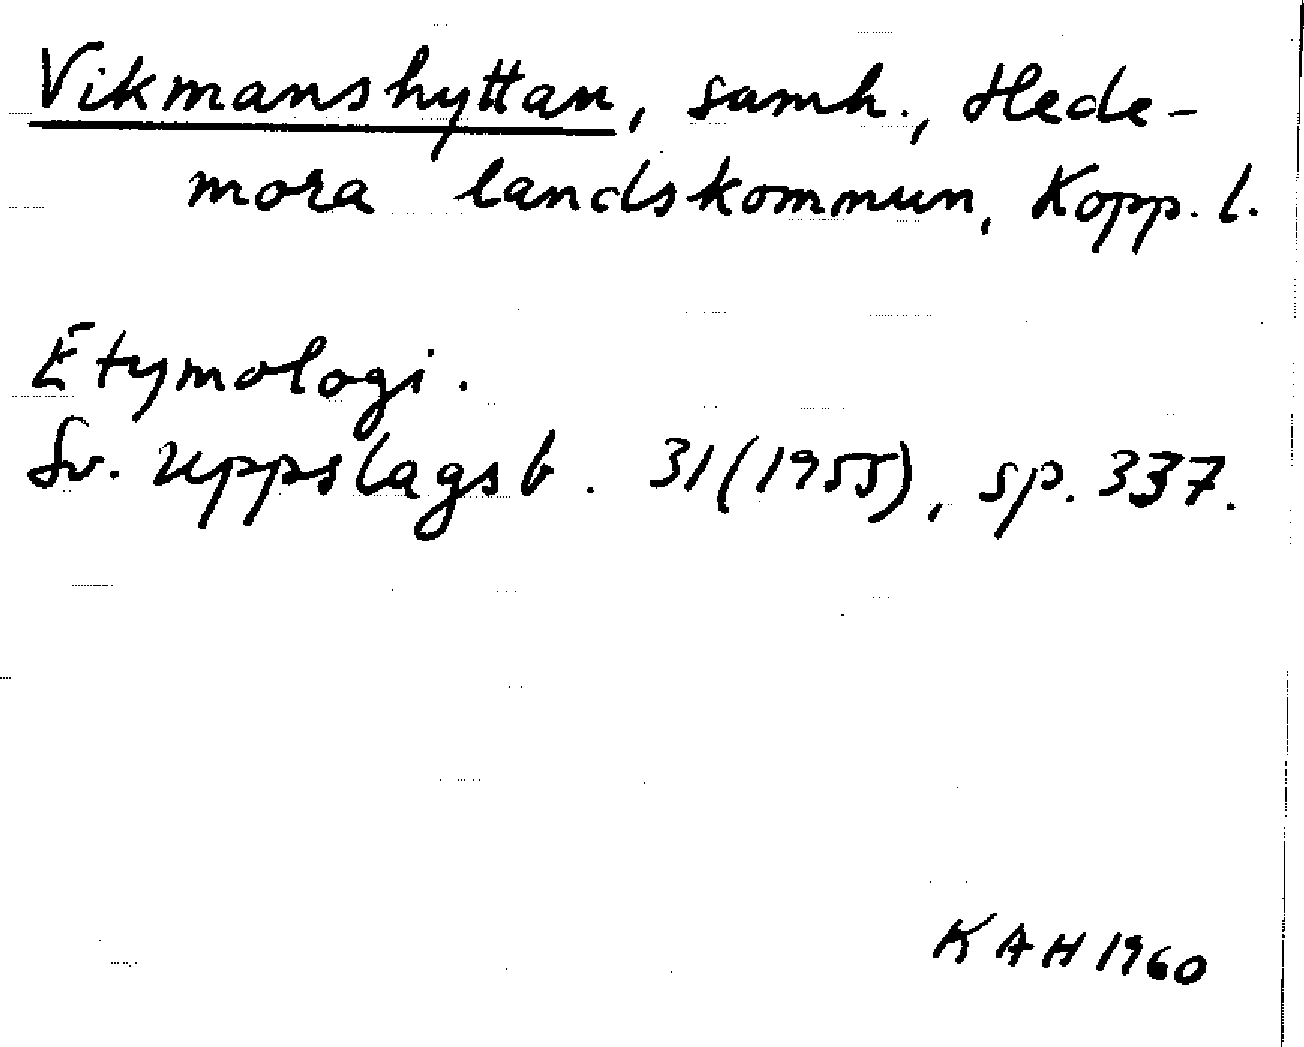 Vikmanshyttan, samh., Hede-
mora landskommun, Kopp. l.
Etymologi.
Sv. uppslagsb. 31(1955), sp. 337.
KAH 1960